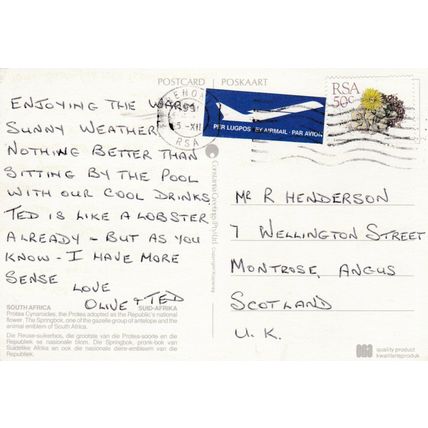 POSTCARD POSKAART
ENJOYING THE WARM
SUNNY WEATHER
NOTHING BETTER THAN
SITTING BY THE POOL
WITH OUR COOL DRINKS
TED IS LIKE A LOBSTER
ALREADY - BUT AS YOU
KNOW - I HAVE MORE
SENSE LOVE
OLIVE + TED
SOUTH AFRICA SUID-AFRIKA
Protea Cynaroides, the Protea adopted as the Republic's national
flower. The Springbok, one of the gazelle group of antelope and the
animal emblem of South Africa.
Die Reuse-suikerbos, die grootste van die Protea-soorte en die
Republiek se nasionale blom. Die Springbok, pronk-bok van
Suidelike Afrika en ook die nasionale diere-embleem van die
Republiek.
PER LUGPOS BY AIRMAIL PAR AVION
5 -XII
RSA
RSA
50c
MR R HENDERSON
7 WELLINGTON STREET
MONTROSE, ANGUS
SCOTLAND
U.K.
quality product
kwaliteitprodukt